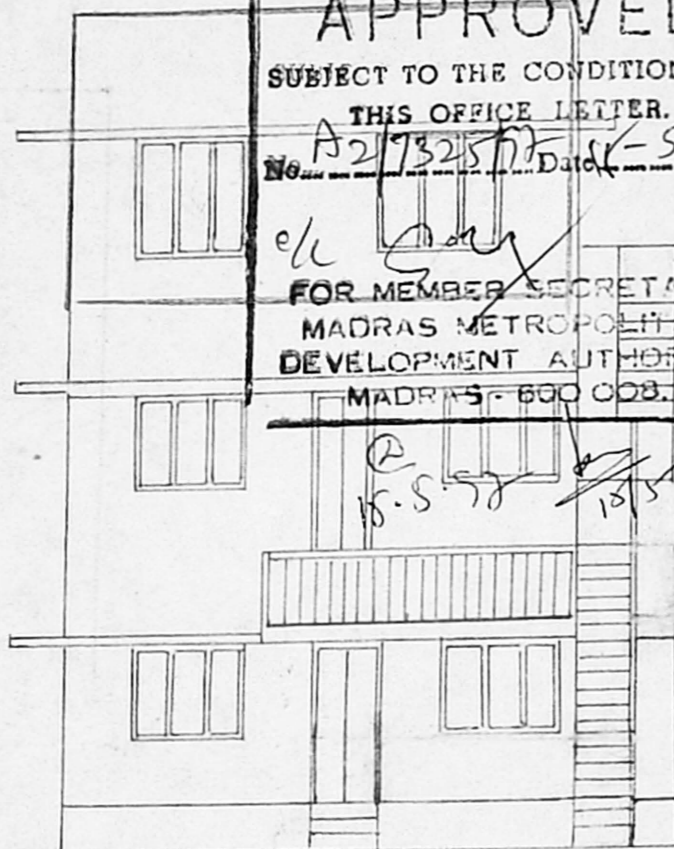 APPROVE
SUBJECT TO THE CONDITION
THIS OFFICE LETTER.
No. A2/7325/97 Date
FOR MEMBER SECRETA
MADRAS METROPOLIT
DEVELOPMENT AUTHOR
MADRAS - 600 008.